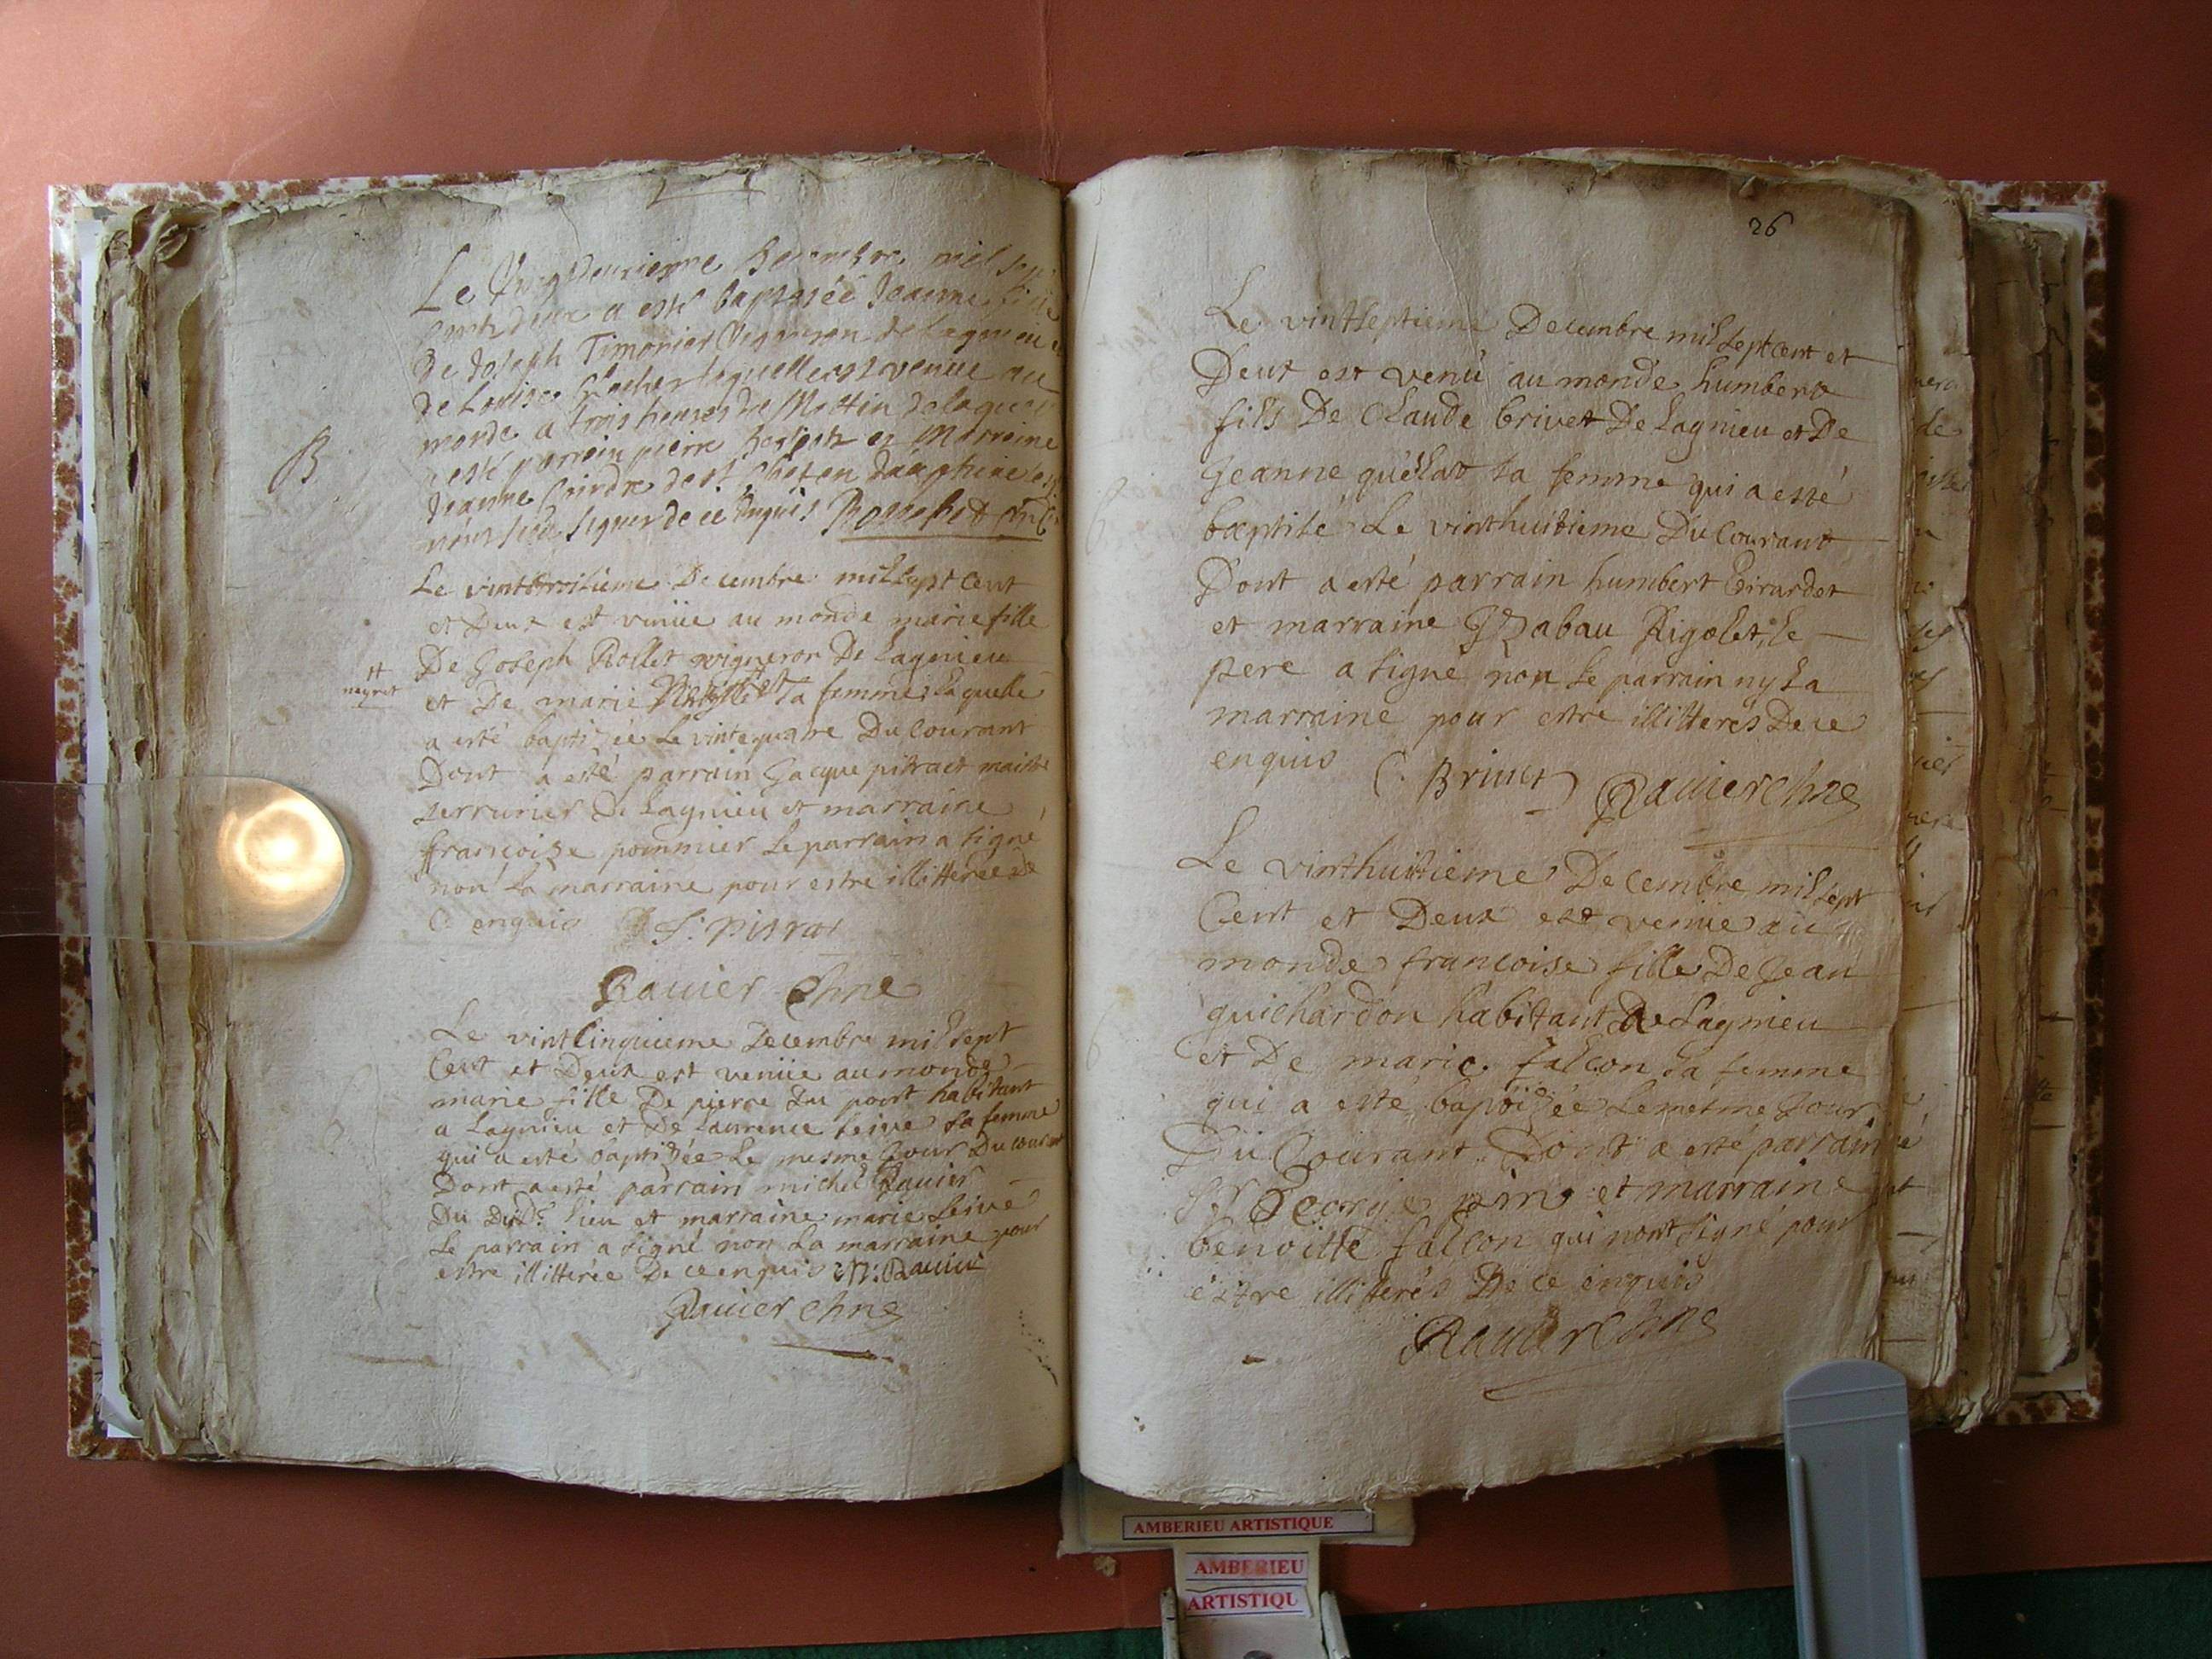 Le Vingtdeuxiesme Decembre mil sep
cents deux a esté baptisée Jeanne fille
de Joseph Timonier Vigneron de Lagnieu et
de Louise laquelle est venue au
monde a trois heures de Mattin de laquelle
a esté parrain pierre et Marreine
Jeanne Coindre de st en dauphiné
signer de ce enquis
B
Le vinttroisieme Decembre mil sept cent
et Deux est venüe au monde marie fille
De Joseph Rollet vigneron De Lagnieu
et De marie sa femme laquelle
++
neyret
a esté baptizée Le vintequatre Du Courant
Dont a esté parrain Jacque pitract maitre
serrurier De Lagnieu et marraine
françoize pommier Le parrain a signé
non La marraine pour estre illitterée de
Ce enquis J. pitrat
Rauier Chne
Le vintCinquieme Decembre mil sept
Cent et Deux est venüe au monde
marie fille De pierre Du port habitant
a Lagnieu et De Laurence seive sa femme
qui a esté baptizée Le mesme Jour Du courant
Dont a esté parrain michel Rauier
Du Dit lieu et marraine marie seive
Le parrain a signé non La marraine pour
estre illitterée De ce enquis M: Rauier
Rauier Chne
26
Le vintseptieme Decembre mil sept cent et
Deux est venû au monde humbert
fils De Claude brivet De Lagnieu et De
Jeanne quélat sa femme qui a esté
baptisé Le vinthuitieme Du Courant
Dont a esté parrain humbert Girardet
et marraine Izabau Rigolet, Le
pere a signé non Le parrain ny La
marraine pour estre illitterés De ce
enquis C. Briuet Rauier Chne
Le vinthuitieme Decembre mil sept
Cent et Deux est venüe au
monde francoise fille De Jean
guichardon habitant De Lagnieu
et De marie falcon sa femme
qui a esté baptizée Le mesme Jour
Du Courant Dont a esté parrain
Sr George et marraine
benoitte falcon qui n'ont signé pour
estre illitterés De ce enquis
Rauier Chne
AMBERIEU ARTISTIQUE
AMBERIEU
ARTISTIQU